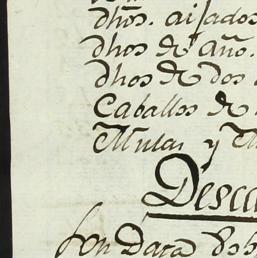 dhos. aisados
dhos de año.
dhos de dos
Caballos de
Mulas y M
Descu
Son Data 8